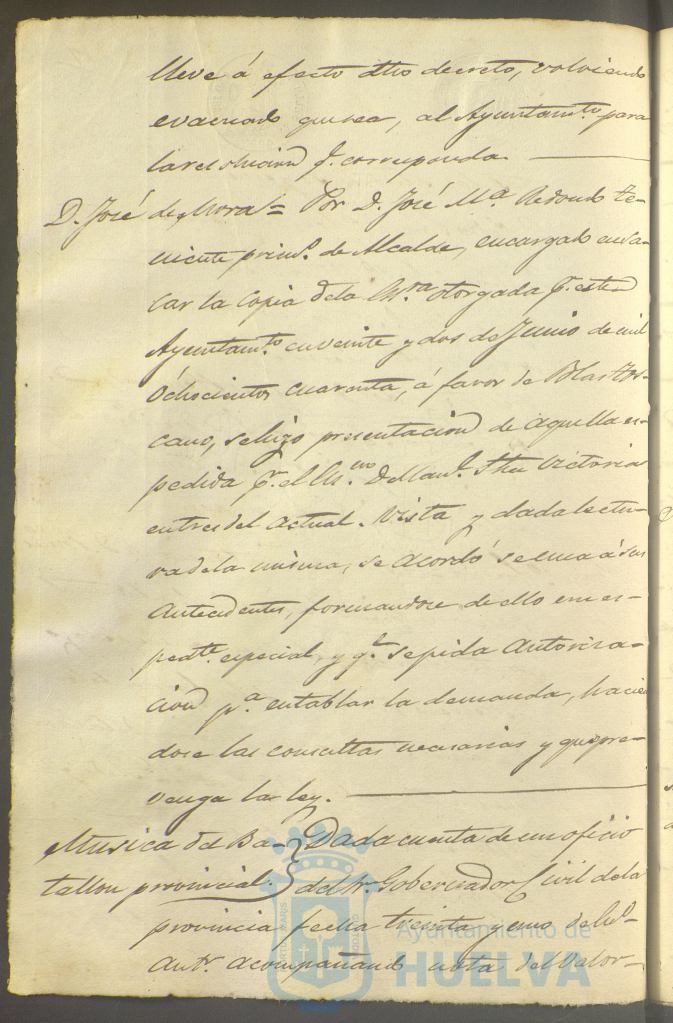 lleve á efecto dho decreto, volviendo
evacuado que sea, al Ayuntamto para
la resolucion q. corresponda.
D. José de Mora = Por D. José Ma. Redondo te-
niente primo. de Alcalde, encargado en sa-
car la Copia de la Esra otorgada pr. este
Ayuntamto. en veinte y dos de Junio de mil
Ochocientos cuarenta, á favor de Blas Tos-
cano, se hizo presentacion de aquella es-
pedida pr. el Esno. D. Manl. Victoria
en tres del actual. Vista y dada lectu-
ra de la misma, se acordó se una á sus
Antecedentes, formandose de ello em es-
pedte. especial, y qe. se pida Autoriza-
cion pa. entablar la demanda, hacien
dose las consultas necesarias y que pre-
venga la ley.
Musica del Ba- Dada cuenta de un oficio
tallon provincial. del Sr. Gobernador Civil de la
provincia fecha treinta y uno de
Antr. acompañando nota del Valor-
Ayuntamiento de
HUELVA